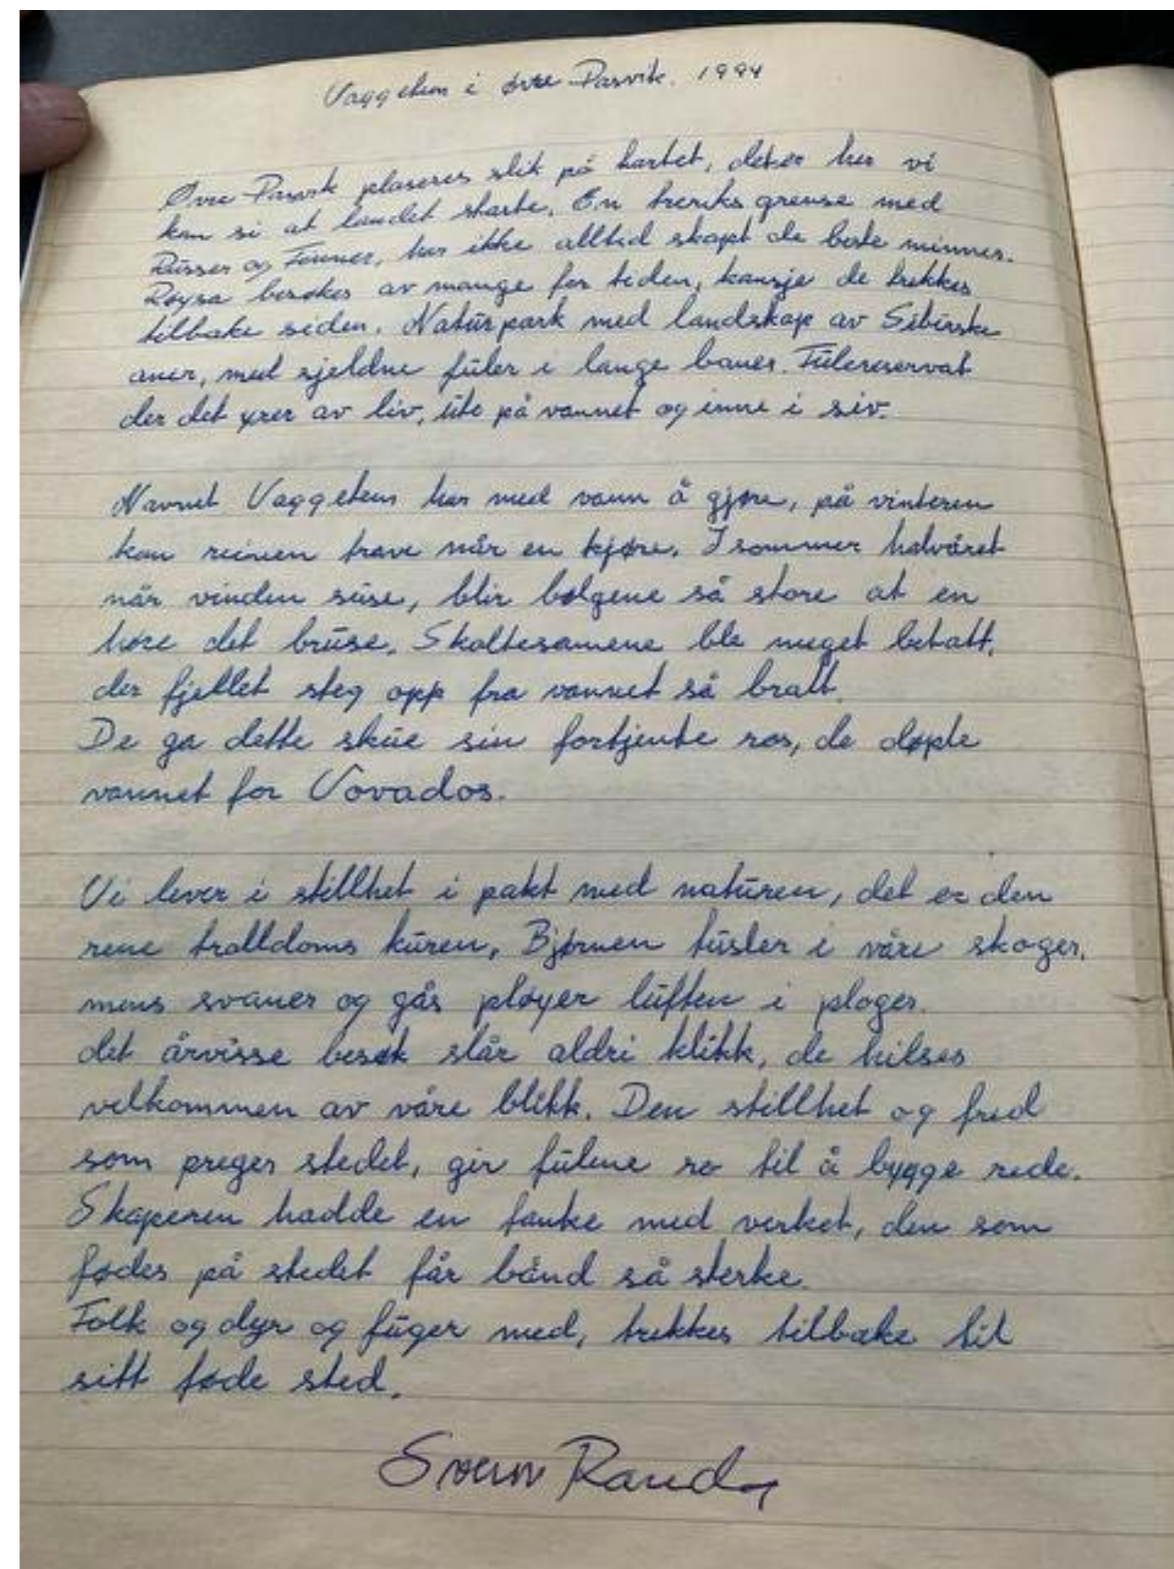 Vaggetem i øvre Pasvik. 1994
Øvre Pasvik plaseres slik på kartet, det er her vi
kan si at landet starte. En treriks grense med
Russer og Finner, har ikke alltid skapt de beste minner.
Røysa besøkes av mange for tiden, kansje de trekkes
tilbake siden. Naturpark med landskap av Sibirske
aner, med sjeldne fuler i lange baner. Fulereservat
der det yrer av liv, ute på vannet og inne i siv.
Navnet Vaggetem har med vann å gjøre, på vinteren
kan reinen trave når en kjøre. I sommer halvåret
når vinden suse, blir bølgene så store at en
høre det bruse. Skoltesamene ble meget betatt,
der fjellet steg opp fra vannet så bratt.
De ga dette skue sin fortjente ros, de døpte
vannet for Vovados.
Vi lever i stillhet i pakt med naturen, det er den
rene tralldoms kuren, Bjørnen tusler i våre skoger,
mens svaner og gås pløyer luften i ploger.
det årvisse besøk slår aldri klikk, de hilses
velkommen av våre blikk. Den stillhet og fred
som preger stedet, gir fulene ro til å bygge rede.
Skaperen hadde en tanke med verket, den som
fødes på stedet får bånd så sterke.
Folk og dyr og fuger med, trekkes tilbake til
sitt føde sted.